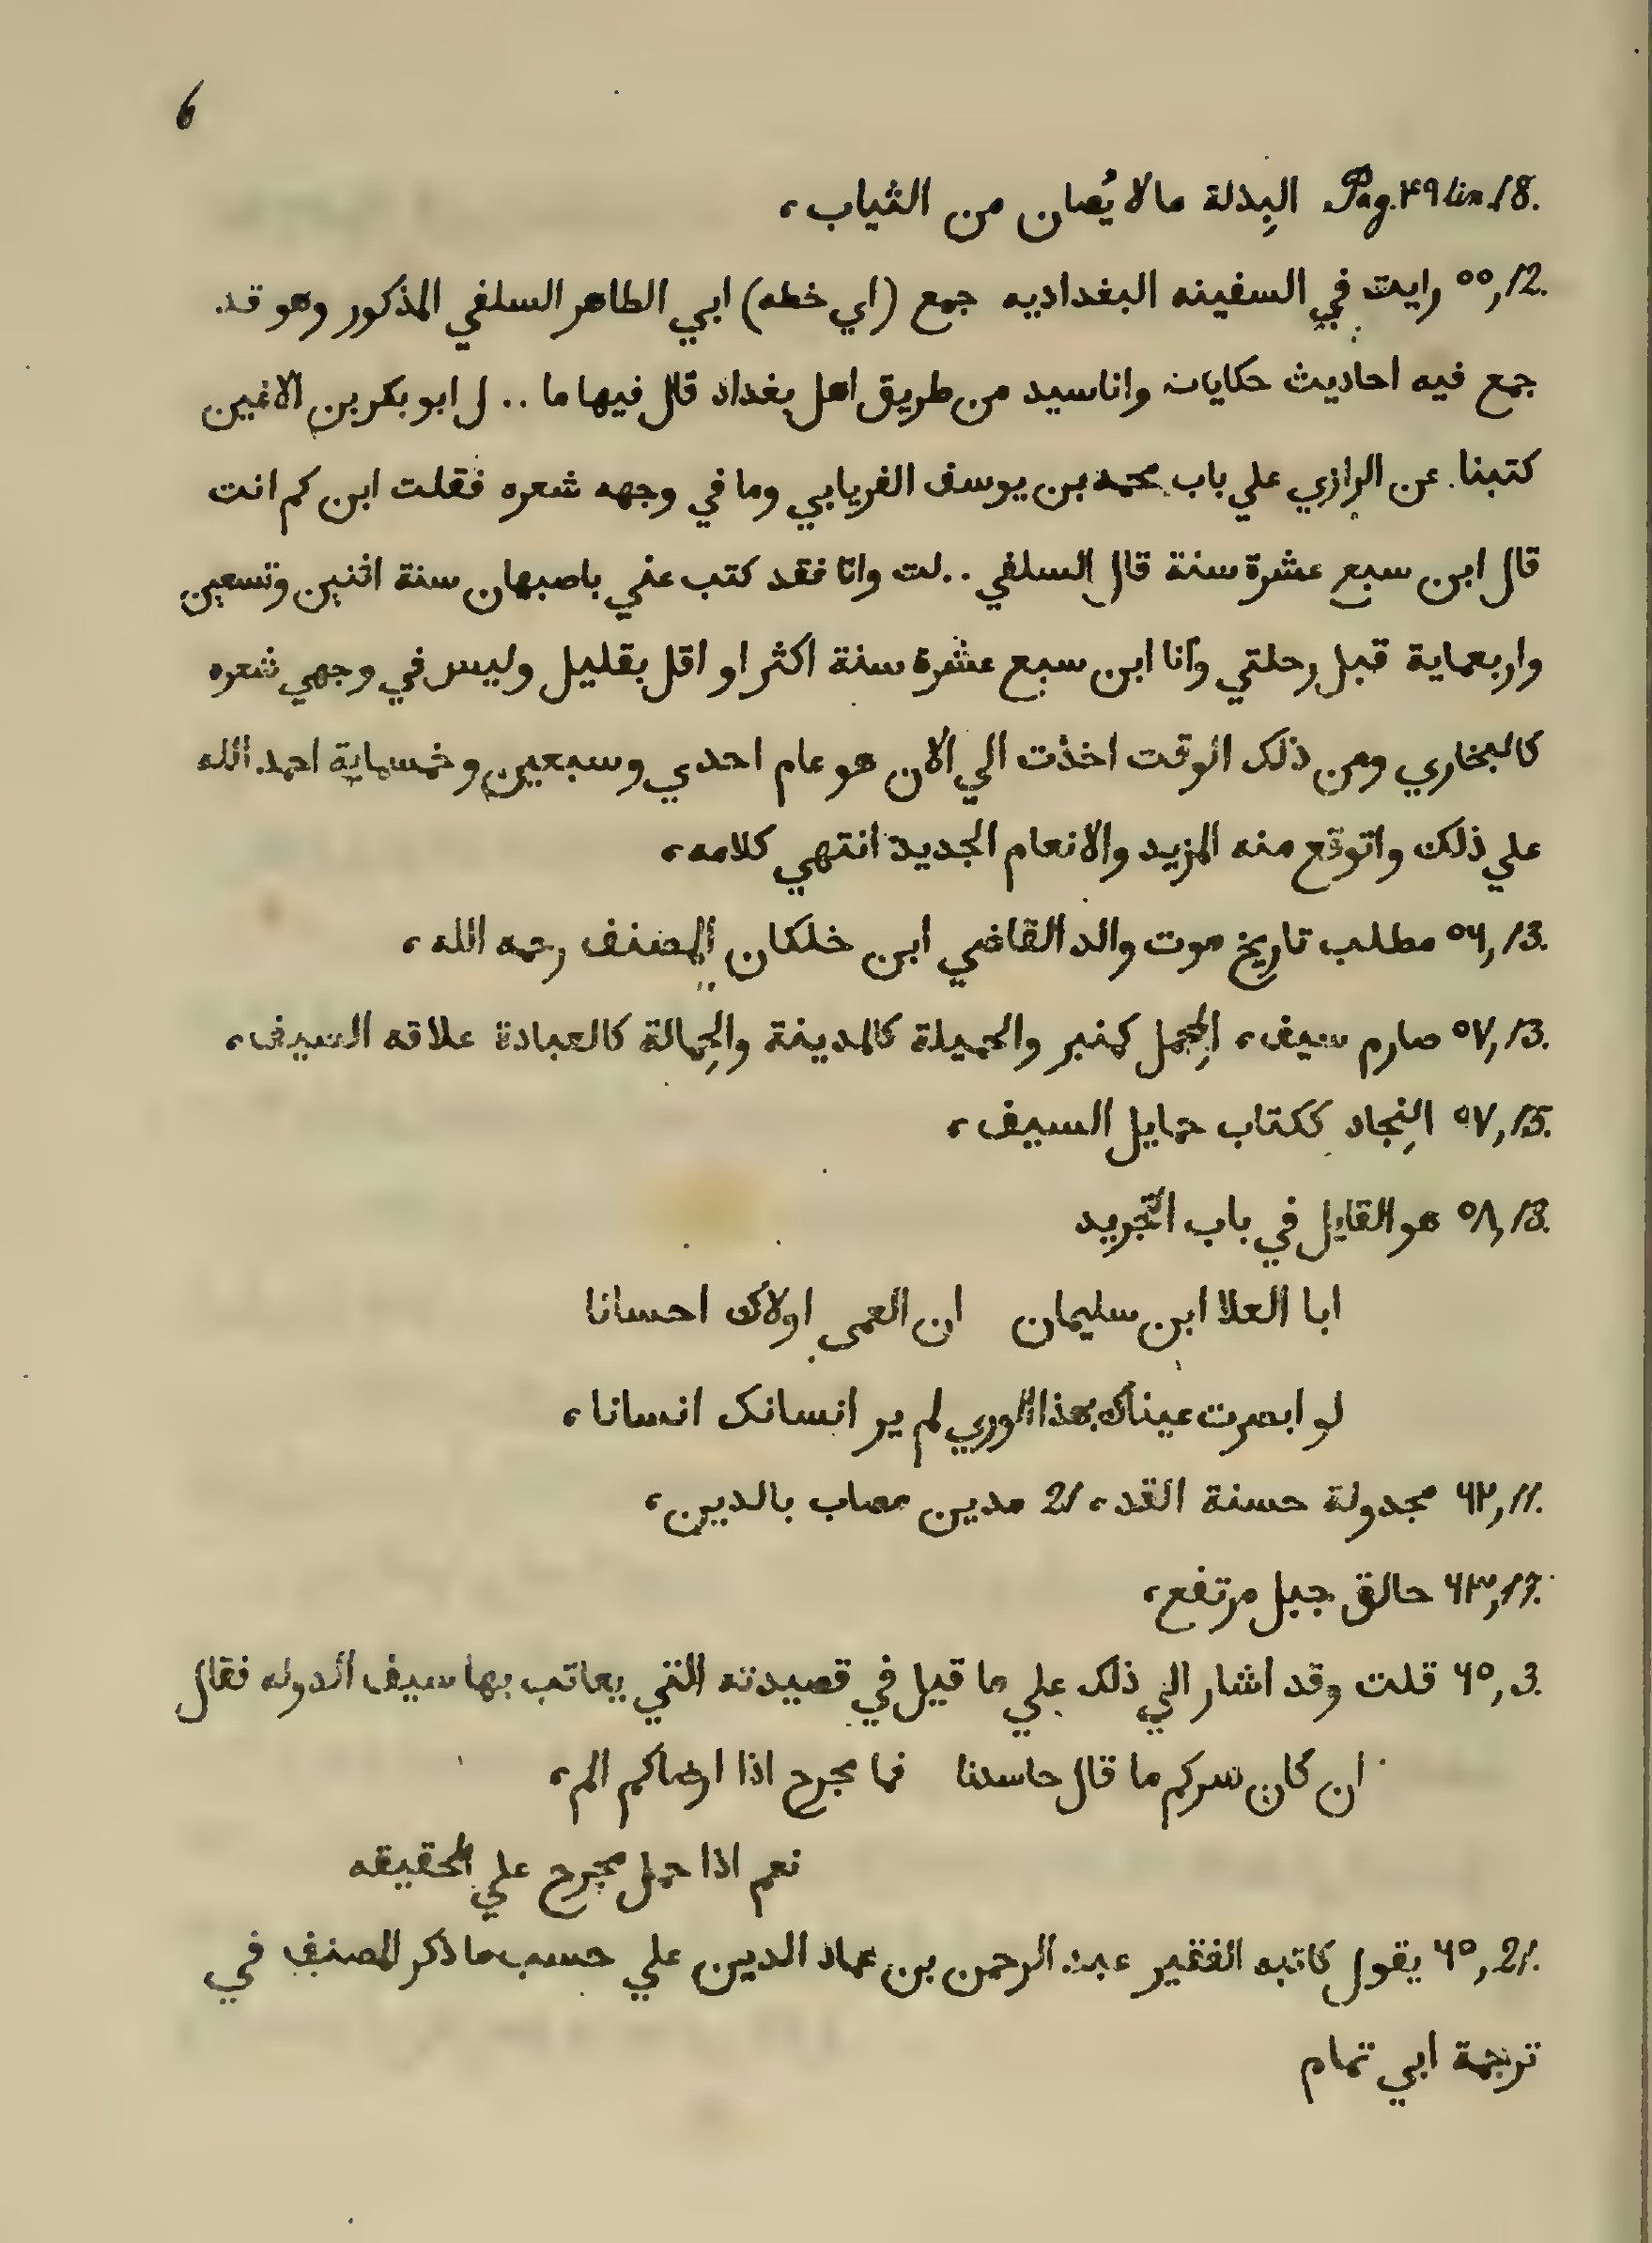 6
Pag. ۴۹ lin. 18. البِذلة ما لا يُصان من الثياب ،
۵۵, 12. رايت في السفينه البغداديه جمع (اي خطه) ابي الطاهر السلفي المذكور وهو قد
جمع فيه احاديث حكايات واناسيد من طريق اهل بغداد قال فيها ما .. ل ابو بكر بن الاعين
كتبنا عن الرازي علي باب محمد بن يوسف الفريابي وما في وجهه شعره فقلت ابن كم انت
قال ابن سبع عشرة سنة قال السلفي ..لت وانا فقد كتب عني باصبهان سنة اثنين وتسعين
واربعماية قبل رحلتي وانا ابن سبع عشرة سنة اكثر او اقل بقليل وليس في وجهي شعره
كالبخاري ومن ذلك الوقت اخذت الي الان هو عام احدي وسبعين وخمسماية احمد الله
علي ذلك واتوقع منه المزيد والانعام الجديد انتهي كلامه ،
۵۶, 13. مطلب تاريخ موت والد القاضي ابن خلكان المصنف رحمه الله ،
۵۷, 13. صارم سيف ، المِحمل كمنبر والحميلة كالمدينة والحِمالة كالعبادة علاقه السيف ،
۵۷, 15. النِجاد ككتاب حمايل السيف ،
۵۸, 18. هو القايل في باب التجريد
ابا العلا ابن سليمان ان العمى اولاك احسانا
لو ابصرت عيناك هذا الوري لم ير انسانك انسانا ،
۶۲, 11. مجدولة حسنة القد ، 21 مدين مصاب بالدين ،
۶۳, 17. حالق جبل مرتفع ،
۶۵, 3. قلت وقد اشار الي ذلك علي ما قيل في قصيدته التي يعاتب بها سيف الدوله فقال
ان كان سركم ما قال حاسدنا فما لجرح اذا ارضاكم الم ،
نعم اذا حمل لجرح علي الحقيقه
۶۵, 21. يقول كاتبه الفقير عبد الرحمن بن عماد الدين علي حسب ما ذكر المصنف في
ترجمة ابي تمام